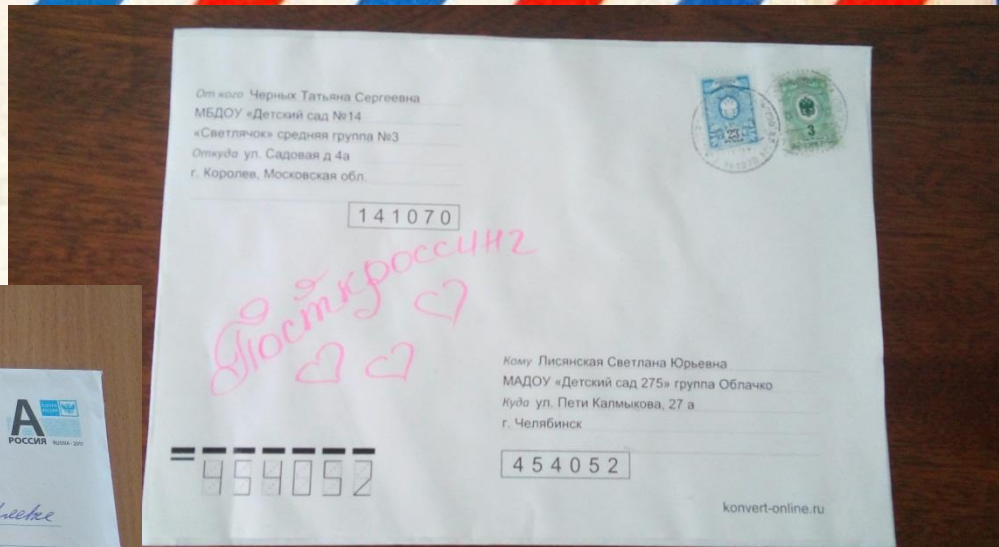 От кого Черных Татьяна Сергеевна
МБДОУ «Детский сад №14
«Светлячок» средняя группа №3
Откуда ул. Садовая д 4а
г. Королев, Московская обл.
141070
23
3
Посткроссинг
Кому Лисянская Светлана Юрьевна
МАДОУ «Детский сад 275» группа Облачко
Куда ул. Пети Калмыкова, 27 а
г. Челябинск
454052
454052
konvert-online.ru
А
РОССИЯ